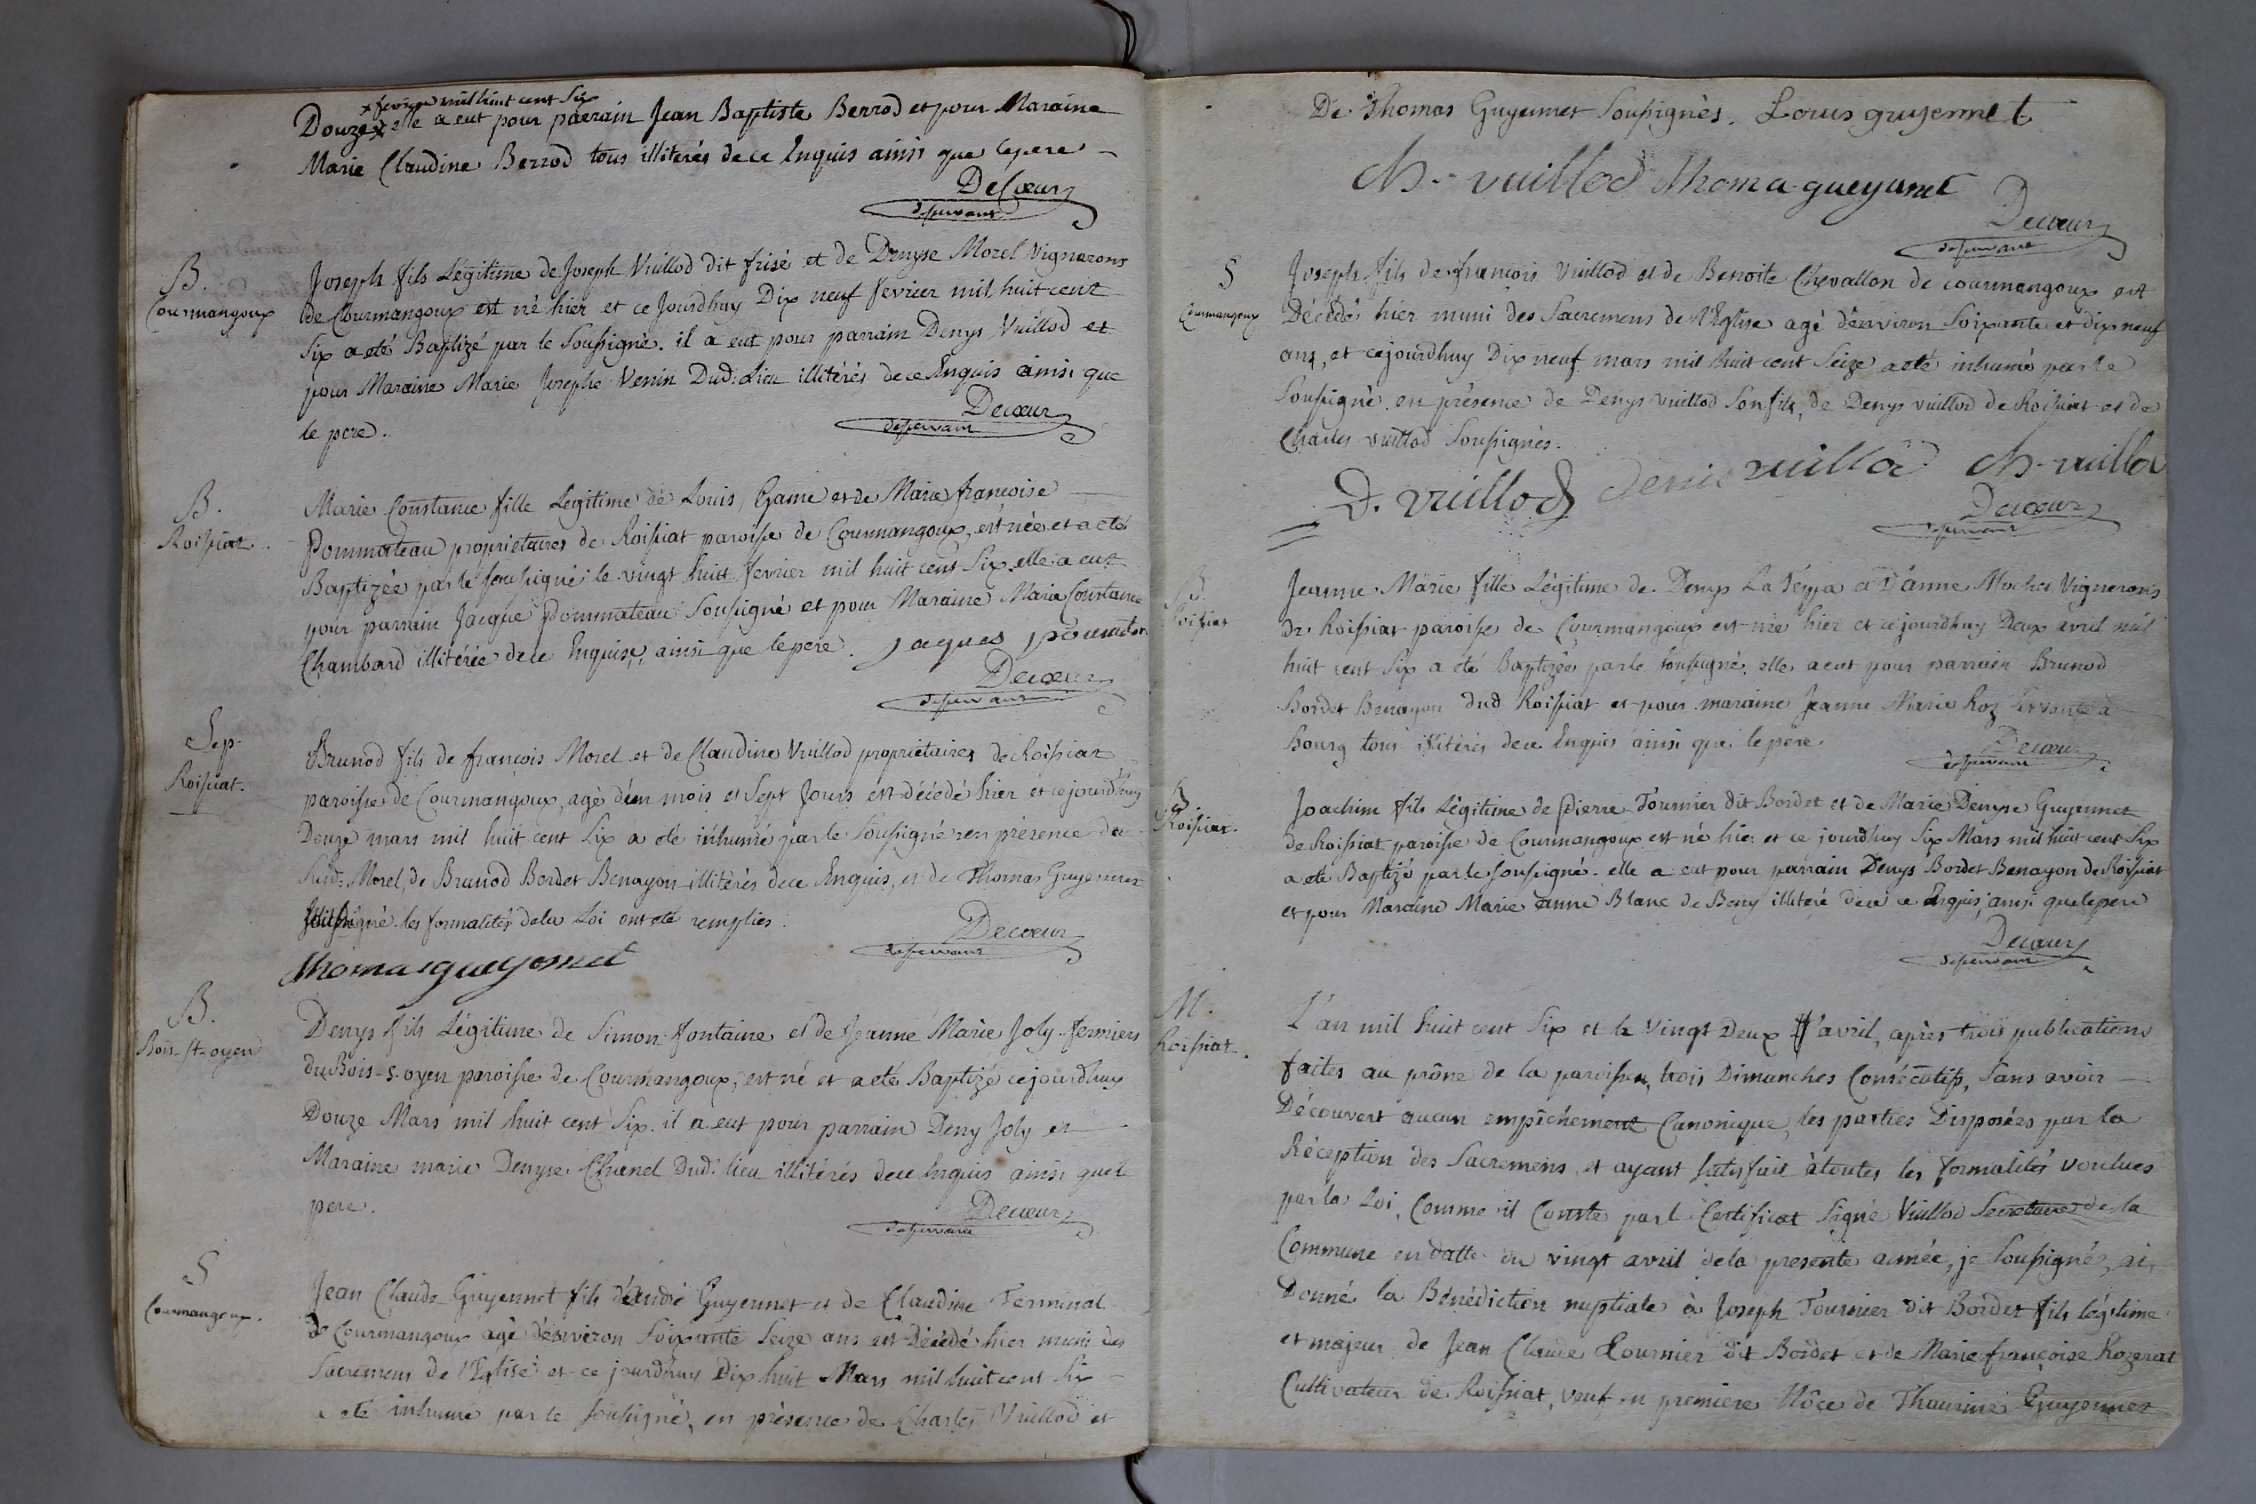 + fevrier mil huit cent Six
Douze x elle a eut pour parrain Jean Baptiste Berrod et pour Maraine
Marie Claudine Berrod tous illiterés de ce Enquis ainsi que le pere
DeCoeur
desservant
B.
Courmangoux
Joseph fils Légitime de Joseph Vuillod dit frisé et de Denyse Morel Vignerons
de Courmangoux est né hier et ce Jourdhuy Dix neuf fevrier mil huit cent
Six a eté Baptizé par le Soussigné. il a eut pour parrain Denys Vuillod et
pour Maraine Marie Josephe Venin Dud: Lieu illitérés de ce Enquis ainsi que
le pere.
Decoeur
desservant
B.
Roissiat.
Marie Constance fille Legitime de Louis Game et de Marie francoise
Pommateau proprietaires de Roissiat paroisse de Courmangoux, est née et a eté
Baptizée par le soussigné le vingt huit fevrier mil huit cent Six elle a eut
pour parrain Jacque Pommateau Soussigné et pour Maraine Marie Constance
Chambard illitérée de ce Enquise, ainsi que le pere.
Decoeur
desservant
Sep.
Roissiat.
Brunod fils de françois Morel et de Claudine Vuillod proprietaires de Roissiat
paroisse de Courmangoux, agé d'un mois et Sept Jours est décédé hier et ce jourdhuy
Douze mars mil huit cent Six a eté inhumé par le Soussigné en présence de
Morel, de Brunod Bordet Benayon illitérés de ce Enquis, et de Thomas Guyennet
Soussigné. les formalités de la Loi ont eté remplies.
Decoeur
desservant
Thomas gueyennet
B.
Bois-St-oyen
Denys fils Légitime de Simon fontaine et de Jeanne Marie Joly fermiers
du Bois-S. oyen paroisse de Courmangoux, est né et a eté Baptizé ce jourdhuy
Douze Mars mil huit cent Six. il a eut pour parrain Deny Joly et
Maraine marie Denyse Chanel Dud: lieu illitérés de ce Enquis ainsi que l
pere.
Decoeur
desservant
S
Courmangoux.
Jean Claude Guyennet fils d'andré Guyennet et de Claudine Terminal
de Courmangoux agé d'environ Soixante Seize ans est Décédé hier muni des
Sacremens de l'Eglise et ce jourdhuy Dix huit Mars mil huit cent Six
a eté inhumé par le soussigné, en présence de Charles Vuillod et
De Thomas Guyennet Soussignés. Louis guyennet
Ch. vuillod Thoma gueyunet
Decoeur
desservant
S
Courmangoux
Joseph fils de françois Vuillod et de Benoite Chevallon de courmangoux est
Décédé hier muni des Sacremens de l'Eglise agé d'environ Soixante et dix neuf
ans, et cejourdhuy Dix neuf mars mil huit cent Seize a eté inhumé par le
Soussigné. en présence de Denys vuillod Son fils, de Denys vuillod de Roissiat et de
Charles vuillod Soussignés.
D. vuillod denis vuillod Ch. vuillod
Decoeur
desservant
B.
Roissiat
Jeanne Marie fille Légitime de Denys La Teyssa et D'anne Mochet Vignerons
de Roissiat paroisse de Courmangoux est née hier et ce jourdhuy Deux avril mil
huit cent Six a eté Baptizée par le soussigné. elle a eut pour parrain Brunod
Bordet Benayon dud Roissiat et pour maraine Jeanne Marie Roz servante à
Bourg tous illitérés de ce Enquis ainsi que le père.
Decoeur
desservant
B.
Roissiat.
Joachim fils Légitime de Pierre Tournier dit Bordet et de Marie Denyse Guyennet
de Roissiat paroisse de Courmangoux est né hier et ce jourdhuy Six Mars mil huit cent Six
a eté Baptizé par le soussigné. elle a eut pour parrain Denys Bordet Benayon de Roissiat
et pour Maraine Marie anne Blanc de Beny illitéré de ce Enquis, ainsi que le pere
Decoeur
desservant
M.
Roissiat.
L'an mil huit cent Six et le Vingt Deux d'avril, après trois publications
faites au prône de la paroisse, trois Dimanches Consécutifs, Sans avoir
Découvert aucun empêchement Canonique, les parties Disposées par la
Réception des Sacremens, et ayant satisfait à toutes les formalités voulues
par la Loi, Comme il Conste par l Certificat Signé Vuillod Secretaire de la
Commune en datte du vingt avril de la presente année, je Soussigné, ai,
Donné la Bénédiction nuptiale à Joseph Tournier dit Bordet fils légitime
et majeur de Jean Claude Tournier dit Bordet et de Marie françoise Rozerat
Cultivateur de Roissiat, veuf en premiere Nôce de Thaurine Guyennet